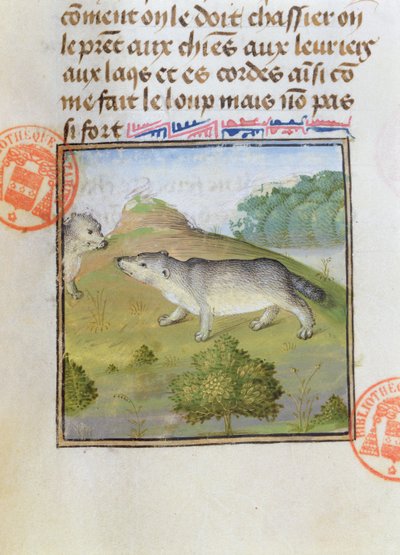 cõment on le doit chassier on
le prẽt aux chiẽs aux leuriers
aux laqs et es cordes aĩsi cõ
me fait le loup mais nõ pas
si fort
BLIOTHEQUE
BIBLIOTHE